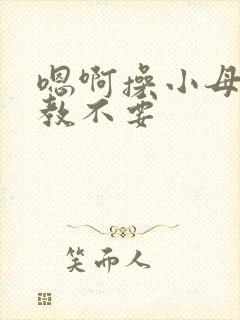 嗯啊操小母
教不要
笑而人